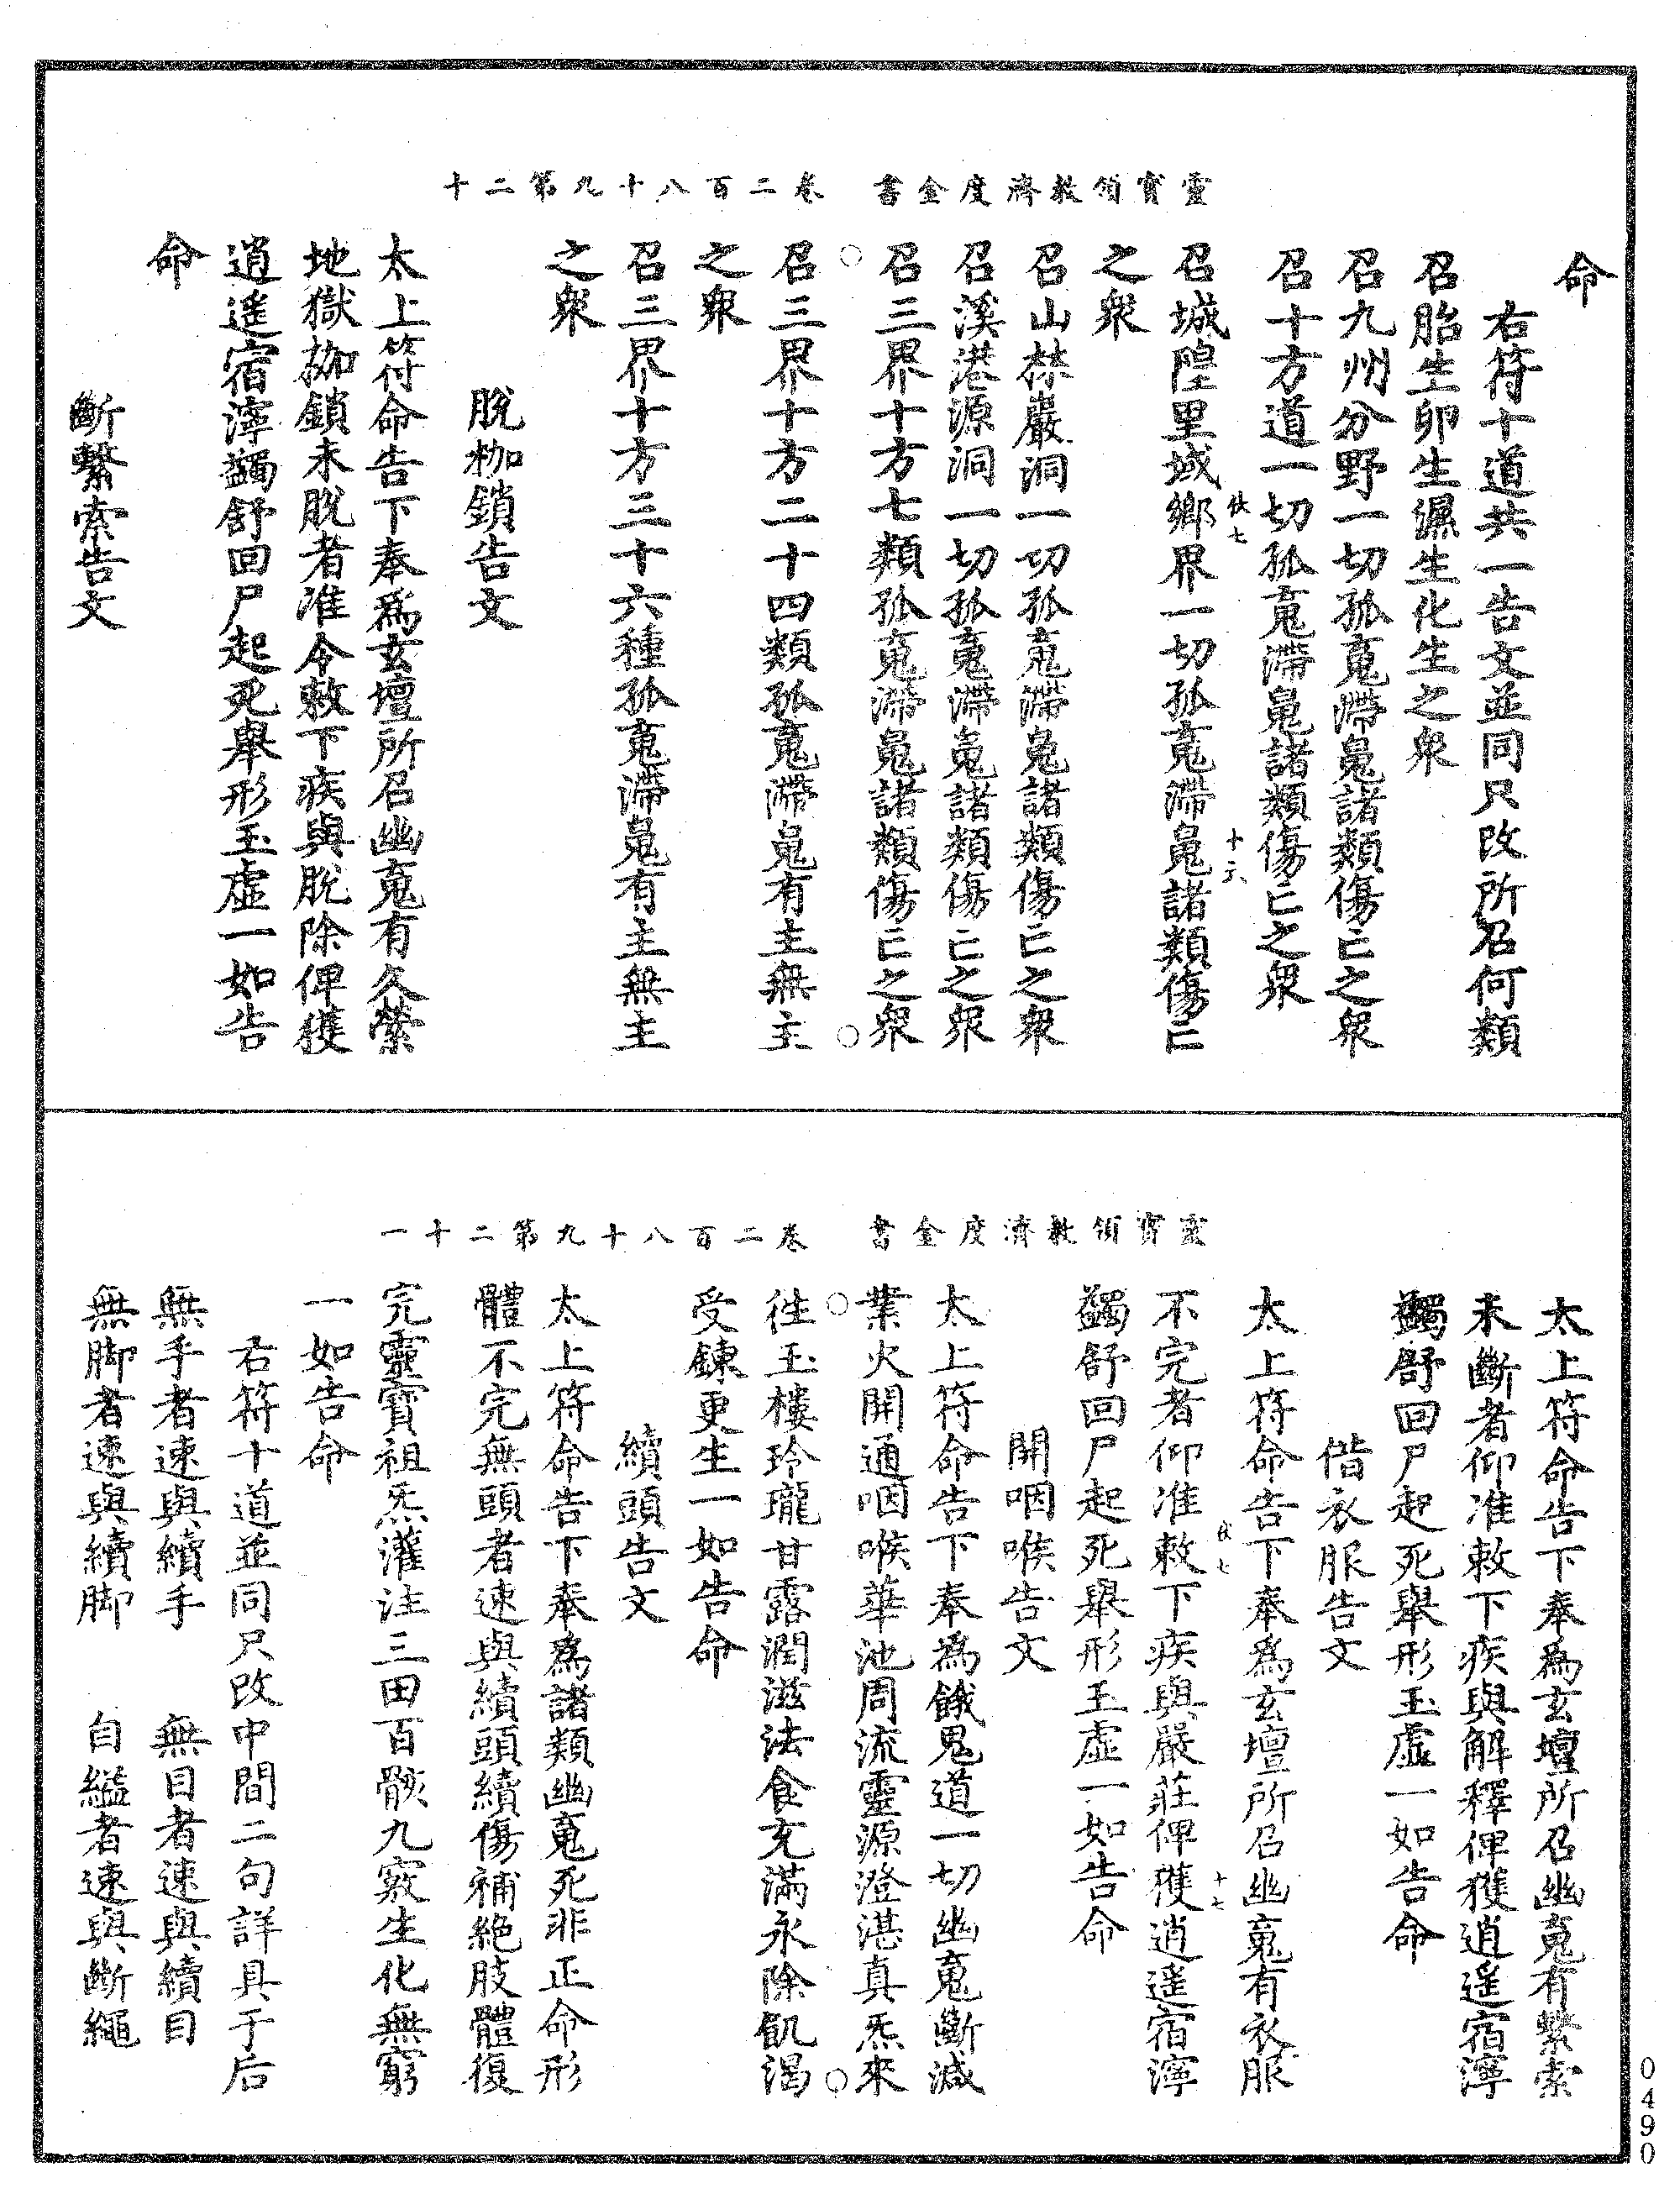 靈寶領教濟度金書　卷二百八十九第二十
命
右符十道共一告文並同只改所召何類
召胎生卵生濕生化生之衆
召九州分野一切孤䰟滯魄諸類傷亡之衆
召十方道一切孤䰟滯魄諸類傷亡之衆
召城隍里域鄉界一切孤䰟滯魄諸類傷亡
之衆
召山林巖洞一切孤䰟滯魄諸類傷亡之衆
召溪港源洞一切孤䰟滯魄諸類傷亡之衆
召三界十方七類孤䰟滯魄諸類傷亡之衆
召三界十方二十四類孤䰟滯魄有主無主
之衆
召三界十方三十六種孤䰟滯魄有主無主
之衆
脫枷鎖告文
太上符命告下奉爲玄壇所召幽䰟有久縈
地獄枷鎖未脫者准令敕下疾與脫除俾獲
逍遙宿滓蠲舒回尸起死舉形玉虛一如告
命
斷繫索告文
靈寶領教濟度金書　卷二百八十九第二十一
太上符命告下奉爲玄壇所召幽䰟有繫索
未斷者仰准敕下疾與解釋俾獲逍遙宿滓
蠲舒回尸起死舉形玉虛一如告命
偕衣服告文
太上符命告下奉爲玄壇所召幽䰟有衣服
不完者仰准敕下疾與嚴莊俾獲逍遙宿滓
蠲舒回尸起死舉形玉虛一如告命
開咽喉告文
太上符命告下奉爲餓鬼道一切幽䰟斷減
業火開通咽喉華池周流靈源澄湛真炁來
往玉樓玲瓏甘露潤滋法食充滿永除飢渴
受鍊更生一如告命
續頭告文
太上符命告下奉爲諸類幽䰟死非正命形
體不完無頭者速與續頭續傷補絕肢體復
完靈寶祖炁灌注三田百骸九竅生化無窮
一如告命
右符十道並同只改中間二句詳具于后
無手者速與續手　無目者速與續目
無脚者速與續脚　自縊者速與斷繩
0490